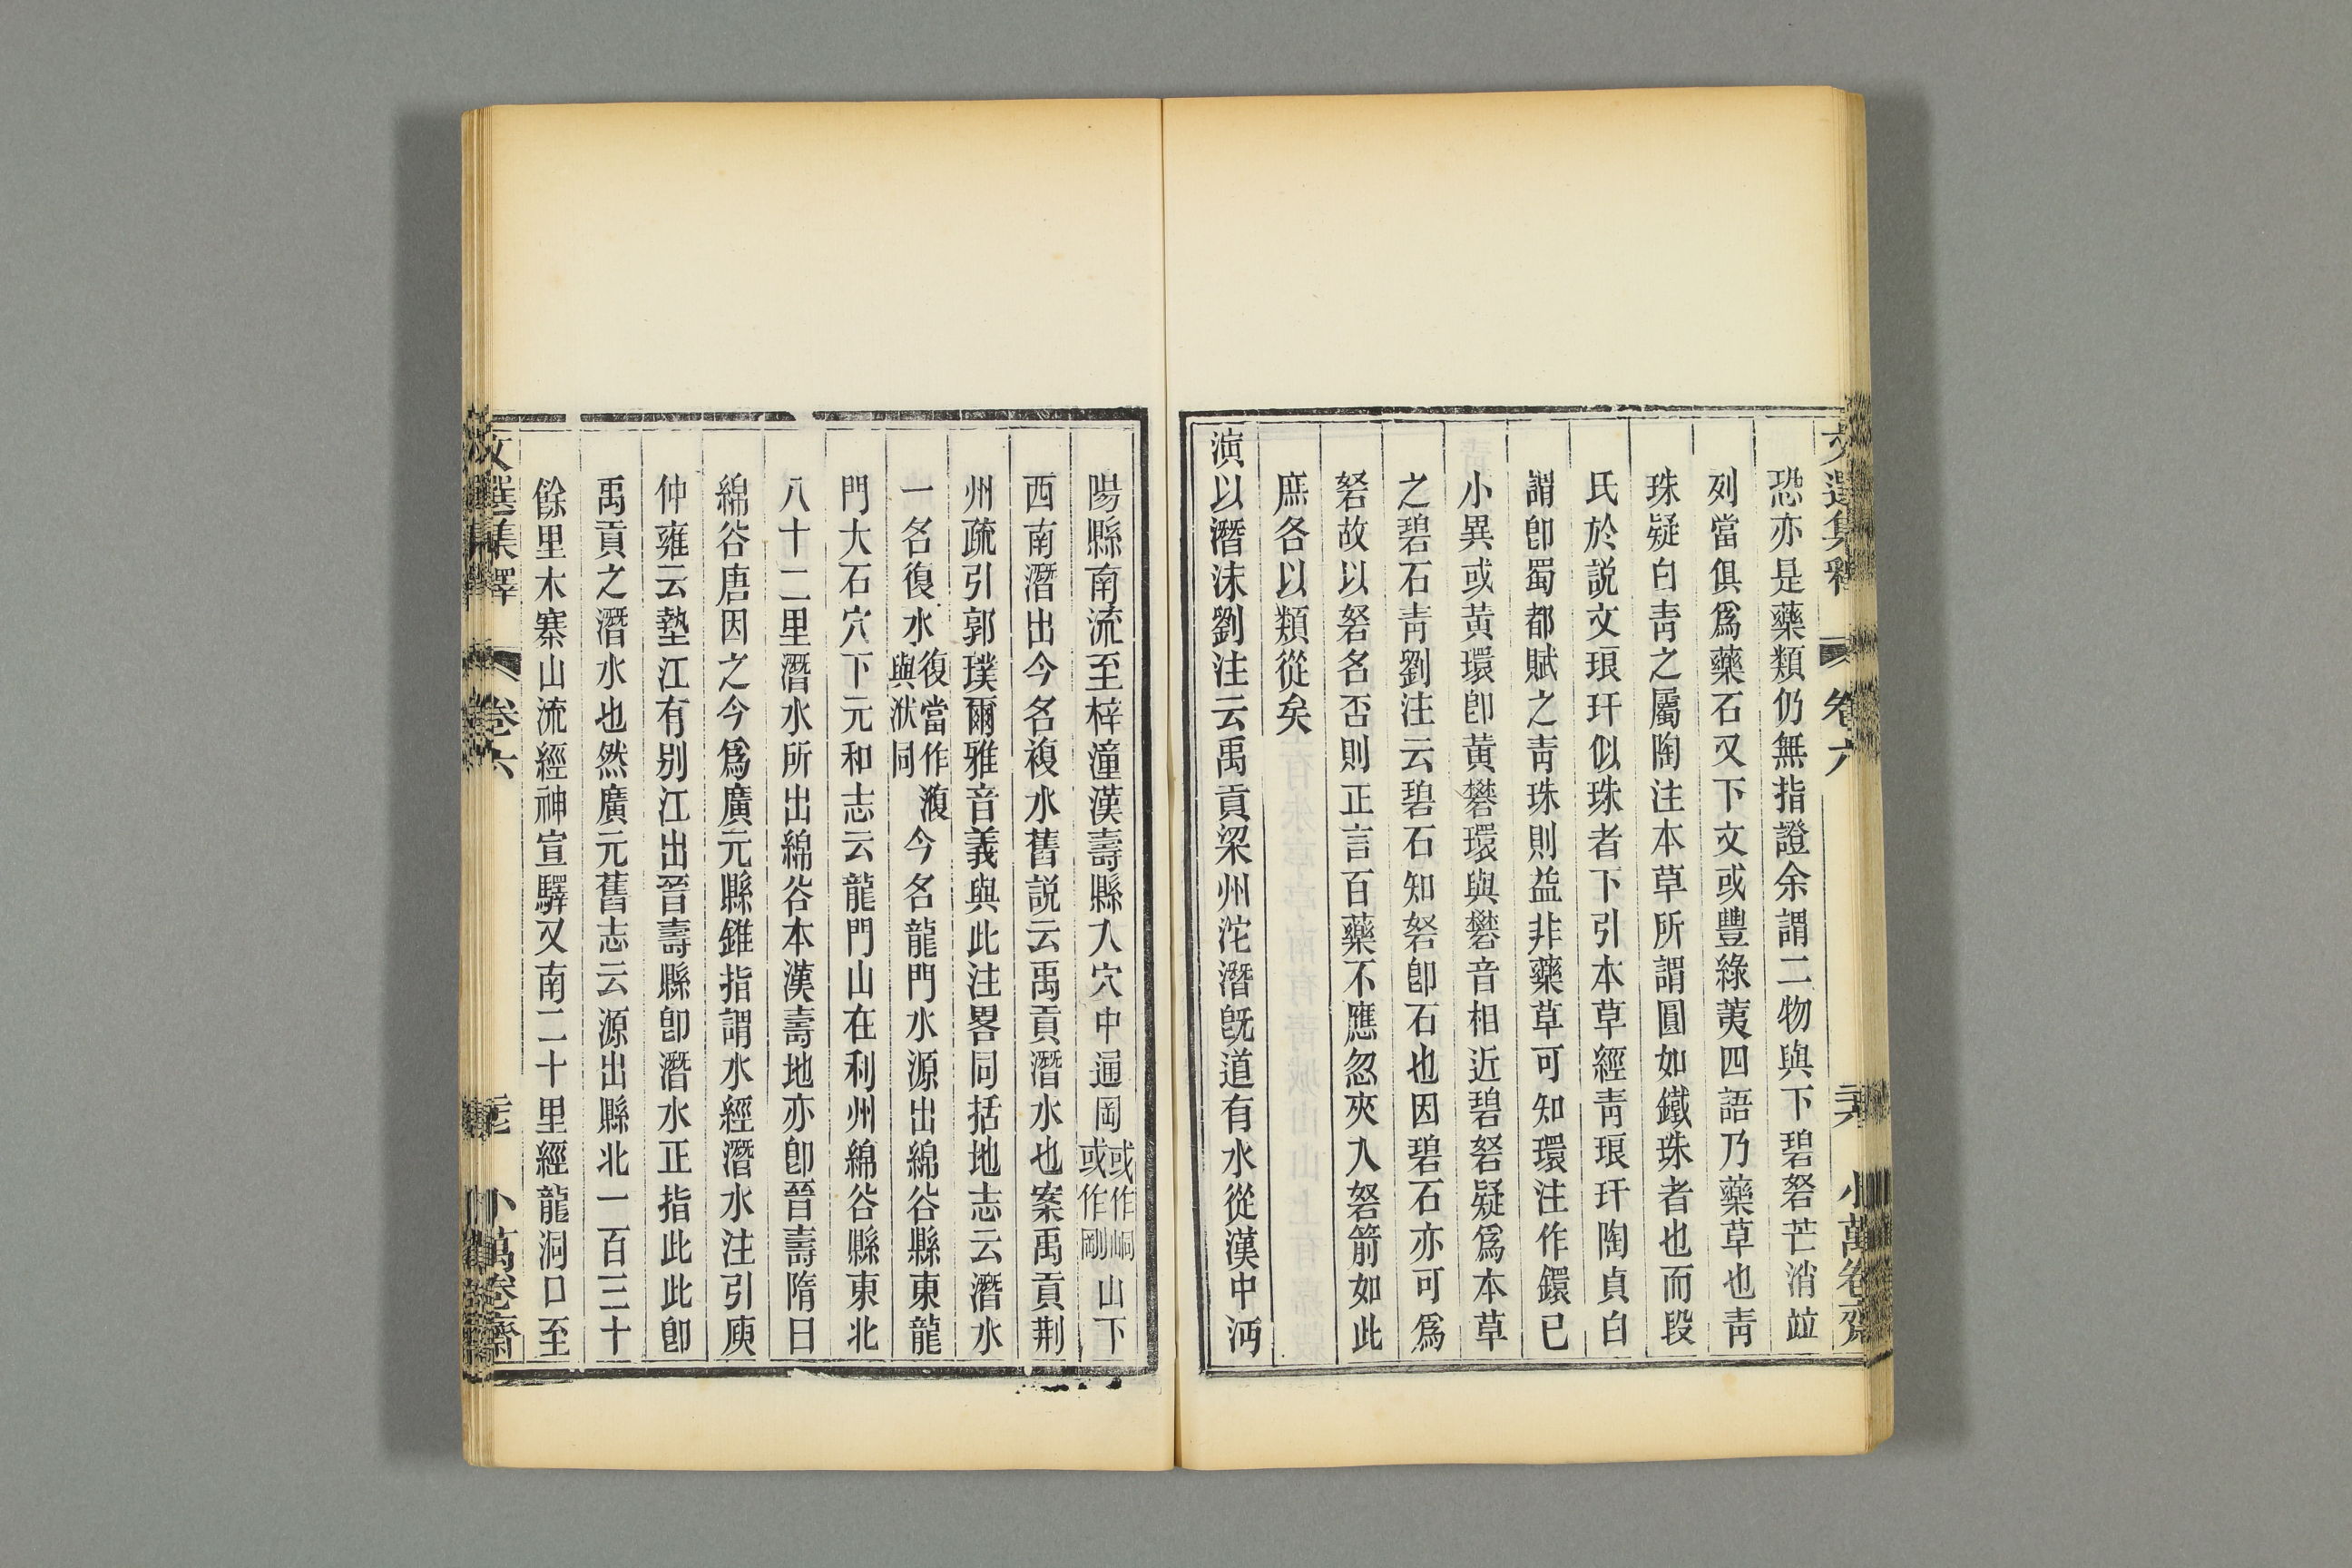 文選集釋 卷六 小萬卷齋
恐亦是藥類仍無指證余謂二物與下碧砮芒消竝
列當俱爲藥石又下文或豐綠荑四語乃藥草也靑
珠疑白靑之屬陶注本草所謂圓如鐵珠者也而段
氏於説文琅玕似珠者下引本草經靑琅玕陶貞白
謂卽蜀都賦之靑珠則益非藥草可知環注作鐶已
小異或黃環卽黃礬環與礬音相近碧砮疑爲本草
之碧石靑劉注云碧石知砮卽石也因碧石亦可爲
砮故以砮名否則正言百藥不應忽夾入砮箭如此
庶各以類從矣
演以潛沬劉注云禹貢梁州沱潛旣道有水從漢中沔
陽縣南流至梓潼漢壽縣入穴中通岡或作峒或作剛山下
西南潛出今名複水舊説云禹貢潛水也案禹貢荆
州疏引郭璞爾雅音義與此注畧同括地志云潛水
一名復水復當作澓與洑同今名龍門水源出綿谷縣東龍
門大石穴下元和志云龍門山在利州綿谷縣東北
八十二里潛水所出綿谷本漢壽地亦卽晉壽隋曰
綿谷唐因之今爲廣元縣錐指謂水經潛水注引庾
仲雍云墊江有別江出晉壽縣卽潛水正指此此卽
禹貢之潛水也然廣元舊志云源出縣北一百三十
餘里木寨山流經神宣驛又南二十里經龍洞口至
文選集釋 卷六 小萬卷齋